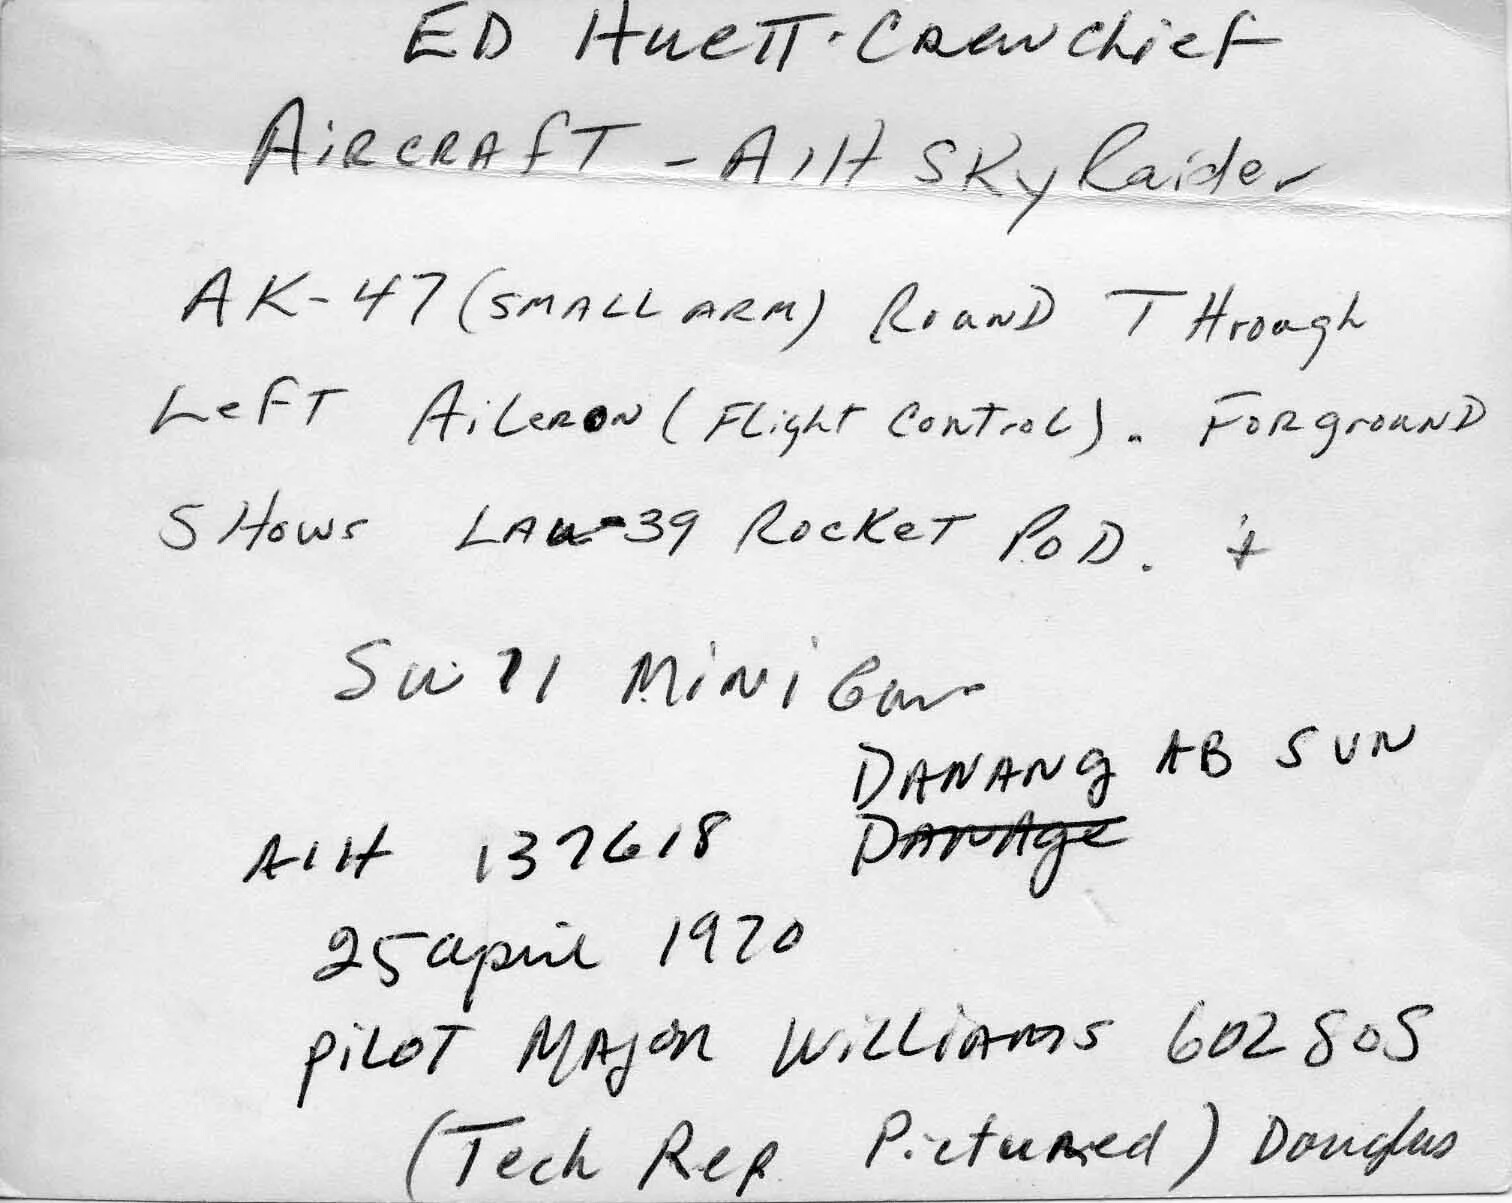 ED HUETT. CREWCHIEF
AIRCRAFT - A1H SKYRaider
AK-47 (SMALL ARM) ROUND THrough
LEFT AiLERON (FLight CONTroL). FORgrounD
SHows LAU-39 RocKeT PoD. +
SUU 11 MiNi Gun
DANANg AB SVN
A1H 137618 DANAge
25 april 1970
PiLOT MAjOR WiLLiAMS 602 SOS
(Tech Rep Pictured) Douglas